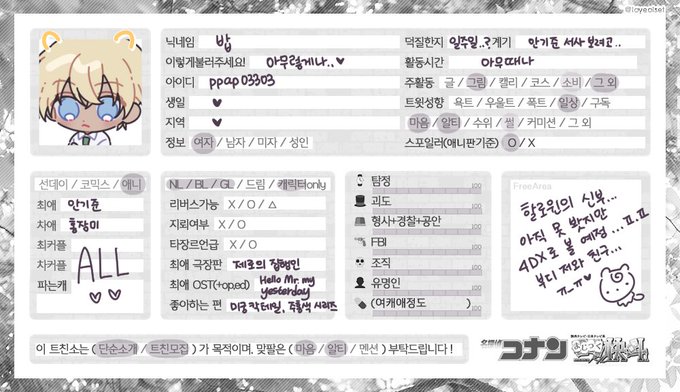 @layeolset
닉네임 밥
이렇게불러주세요! 아무렇게나..♥
아이디 ppap03303
생일 ♥
지역 ♥
정보 여자 / 남자 / 미자 / 성인
덕질한지 일주일..? 계기 안기준 서사 보려고..
활동시간 아무때나
주활동 글 / 그림 / 캘리 / 코스 / 소비 / 그 외
트윗성향 욕트 / 우울트 / 폭트 / 일상 / 구독
마음 / 알티 / 수위 / 썰 / 커미션 / 그 외
스포일러(애니판기준) O / X
선데이 / 코믹스 / 애니
최애 안기준
차애 홍장미
최커플
차커플
파는캐
ALL
♥♥
NL / BL / GL / 드림 / 캐릭터only
리버스가능 X / O / △
지뢰여부 X / O
타장르언급 X / O
최애 극장판 제로의 집행인
최애 OST(+op,ed) Hello Mr. my
yesterday
좋아하는 편 미궁칵테일, 주홍색 시리즈
탐정 100
괴도 100
형사+경찰+공안 100
FBI 100
조직 100
유명인 100
(여캐애정도 ) 100
FreeArea
할로윈의 신부..
아직 못 봤지만
4DX로 볼 예정...ㅠ.ㅠ
부디 저와 친구...
ㅠㅡㅠ♥
이 트친소는 ( 단순소개 / 트친모집 ) 가 목적이며, 맞팔은 ( 마음 / 알티 / 멘션 ) 부탁드립니다 !
名探偵
コナン